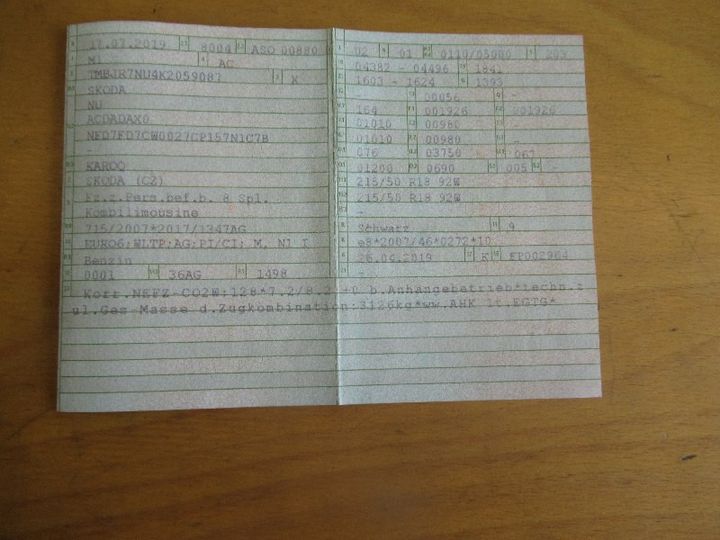 17.07.2019 8004 ASO 00880
M1 AC
TMBJR7NU4K2059087 X
SKODA
NU
ACDADAX0
NFD7FD7CW0027CP157N1C7B
-
KAROQ
SKODA (CZ)
Fz.z.Pers.bef.b. 8 Spl.
Kombilimousine
715/2007*2017/1347AG
EURO6;WLTP;AG;PI/CI; M, N1 I
Benzin
0001 36AG 1498
02 01 0110/05000 205
04382 - 04496 1841
1603 - 1624 1393
- 00056 -
164 001926 001926
01010 00980 -
01010 00980 -
076 03750 067
01200 0690 005 -
215/50 R18 92W
215/50 R18 92W
-
Schwarz 9
e8*2007/46*0272*10
26.04.2019 K
-
Korr.NEFZ-CO2W:128*7.2/8.2:+0 b.Anhängebetrieb*techn.z
ul.Ges-Masse d.Zugkombination:3126kg*ww.AHK lt.EGTG*